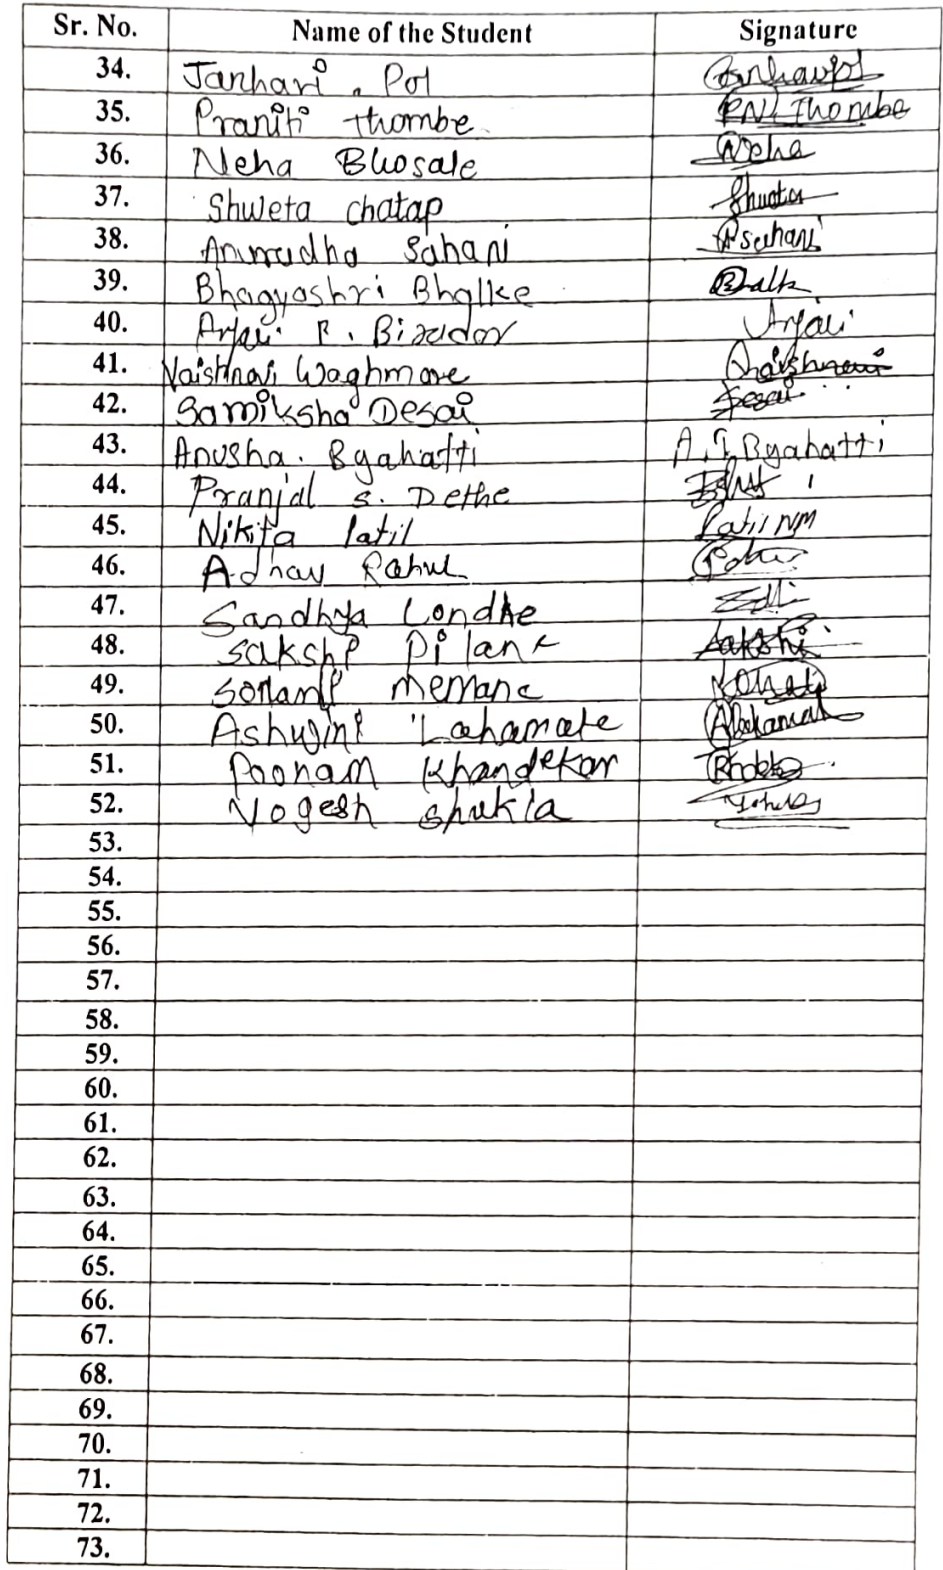 Sr. No. Name of the Student Signature
34. Janhavi . Pol
35. Praniti thombe. P.N. Thombe
36. Neha Bhosale Neha
37. Shweta chatap Shweta
38. Anuradha Sahani Asahani
39. Bhagyashri Bhalke
40. Anjali P. Biradar Anjali
41. Vaishnavi Waghmare Vaishnavi
42. Samiksha Desai Desai
43. Anusha. Byahatti A. I. Byahatti
44. Pranjal S. Dethe
45. Nikita Patil Patil NM
46. Adhav Rahul
47. Sandhya Londhe
48. Sakshi Pilane Sakshi
49. Sonam Memane
50. Ashwini Lahamate
51. Poonam Khandekar
52. Yogesh Shukla
53.
54.
55.
56.
57.
58.
59.
60.
61.
62.
63.
64.
65.
66.
67.
68.
69.
70.
71.
72.
73.